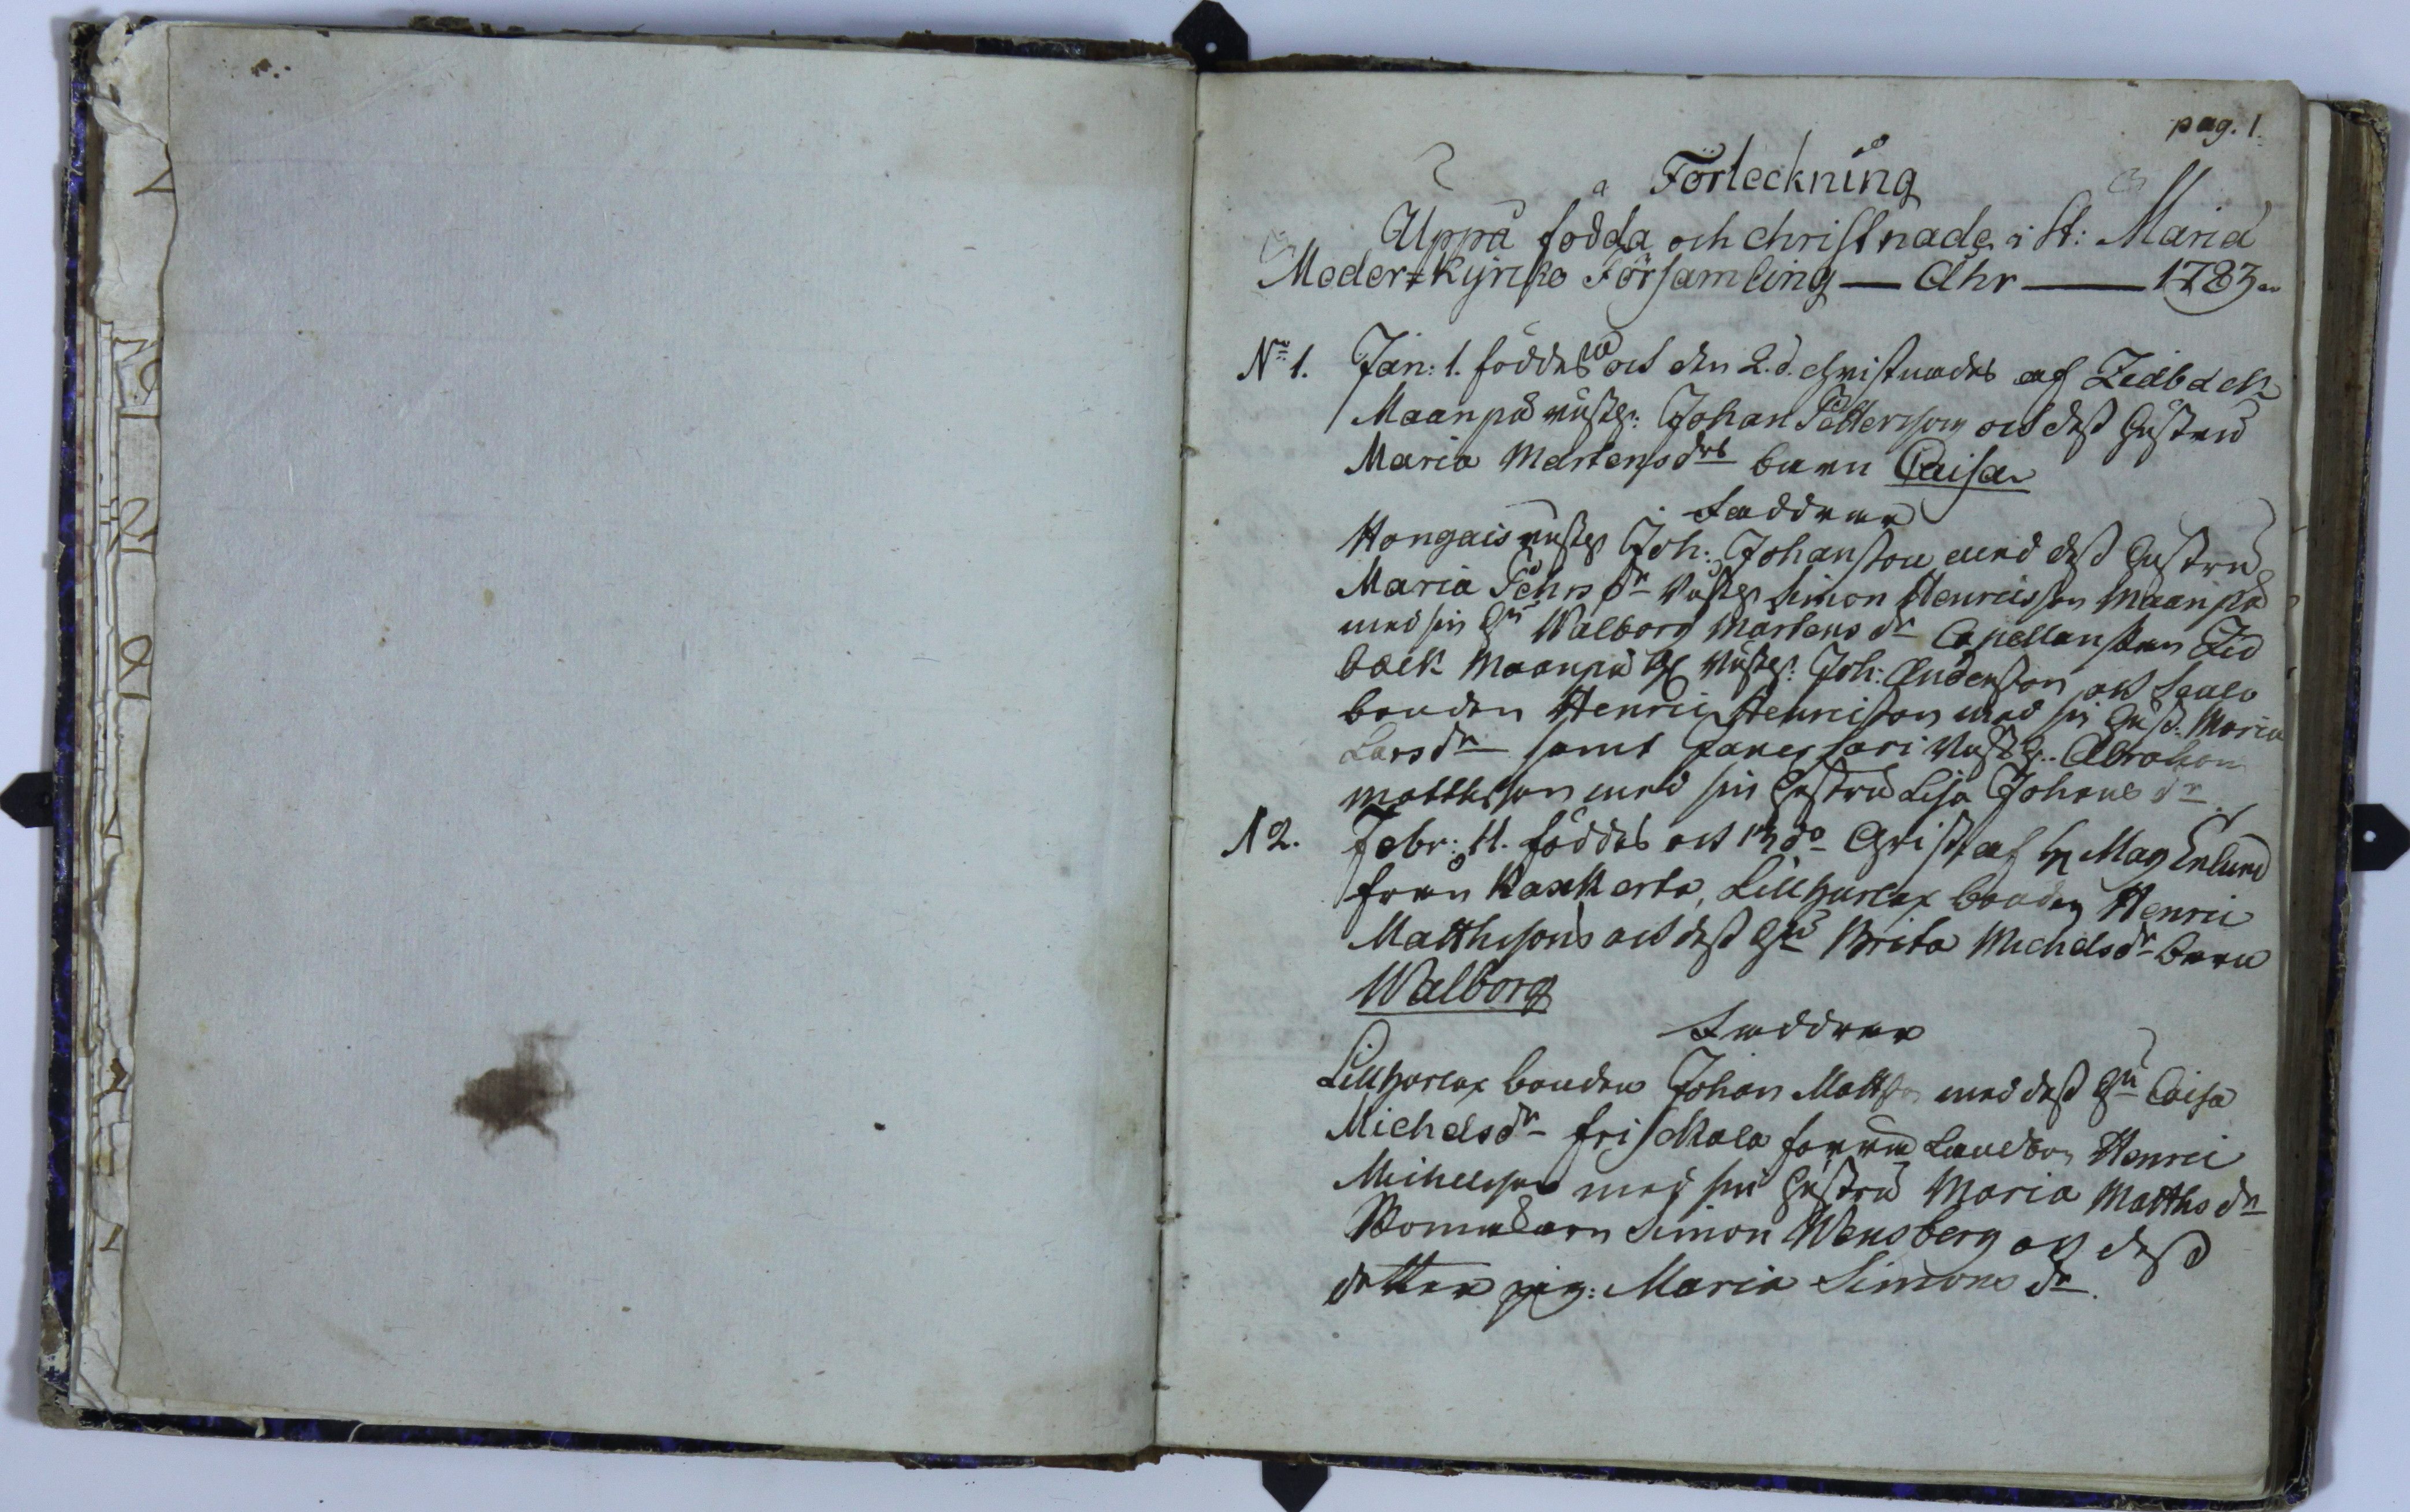 pag. 1.
Förteckning
Uppå födda och christnade i St: Mariæ
Moder-Kyrko Församling — Åhr — 1783
No 1. Jan: 1. föddes och den 2. d. christnades af Zidbäck
Maanpä rusth: Johan Pettersson och dess hustru
Maria Mårtensdrs barn Caisa
Faddrar
Hongais rusth Joh: Johansson med dess hustru
Maria Pehrs dr rusth Simon Henricsson Maanpä
med sin hu Walborg Mårtens dr Capellanskan Zid
bäck Maanpä rusth: Joh: Andersson och
bonden Henric Henricsson med sin hust: Maria
Lars dr samt rusth: Abraham
Mattsson med sin hustru Lisa Johans dr
N 2. Febr: 11. föddes och 13 do Christ af H Mag Enlund
från Kaxkerta, Lillharlax bonden Henric
Matthssons och dess hu Brita Michelsdr barn
Walborg
Faddrar
Lillharlax bonden Johan Mattss med dess hu Caisa
Michelsdr Friskala Landbon Henric
Michelsson med sin hustru Maria Matths dr
Simon Wensberg och dess
dotter pig: Maria Simons dr.